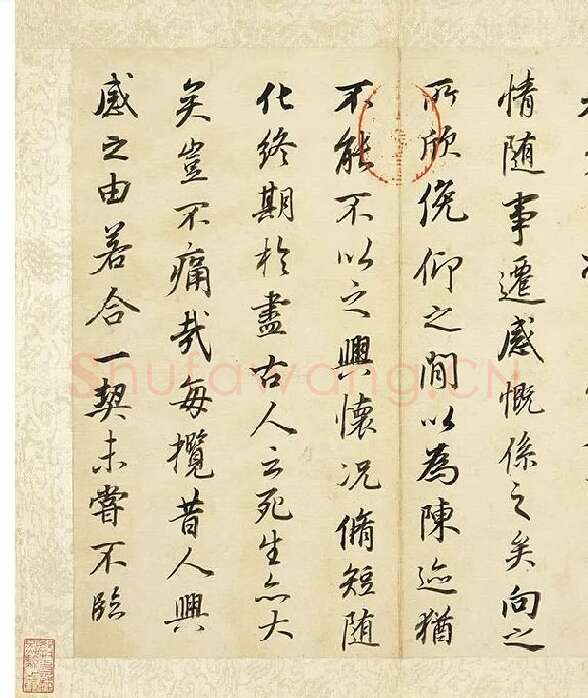 情随事遷感慨係之矣向之
所欣俛仰之間以為陳迹猶
不能不以之興懷况脩短随
化終期於盡古人云死生亦大
矣豈不痛哉每攬昔人興
感之由若合一契未嘗不臨
Shufawang.CN